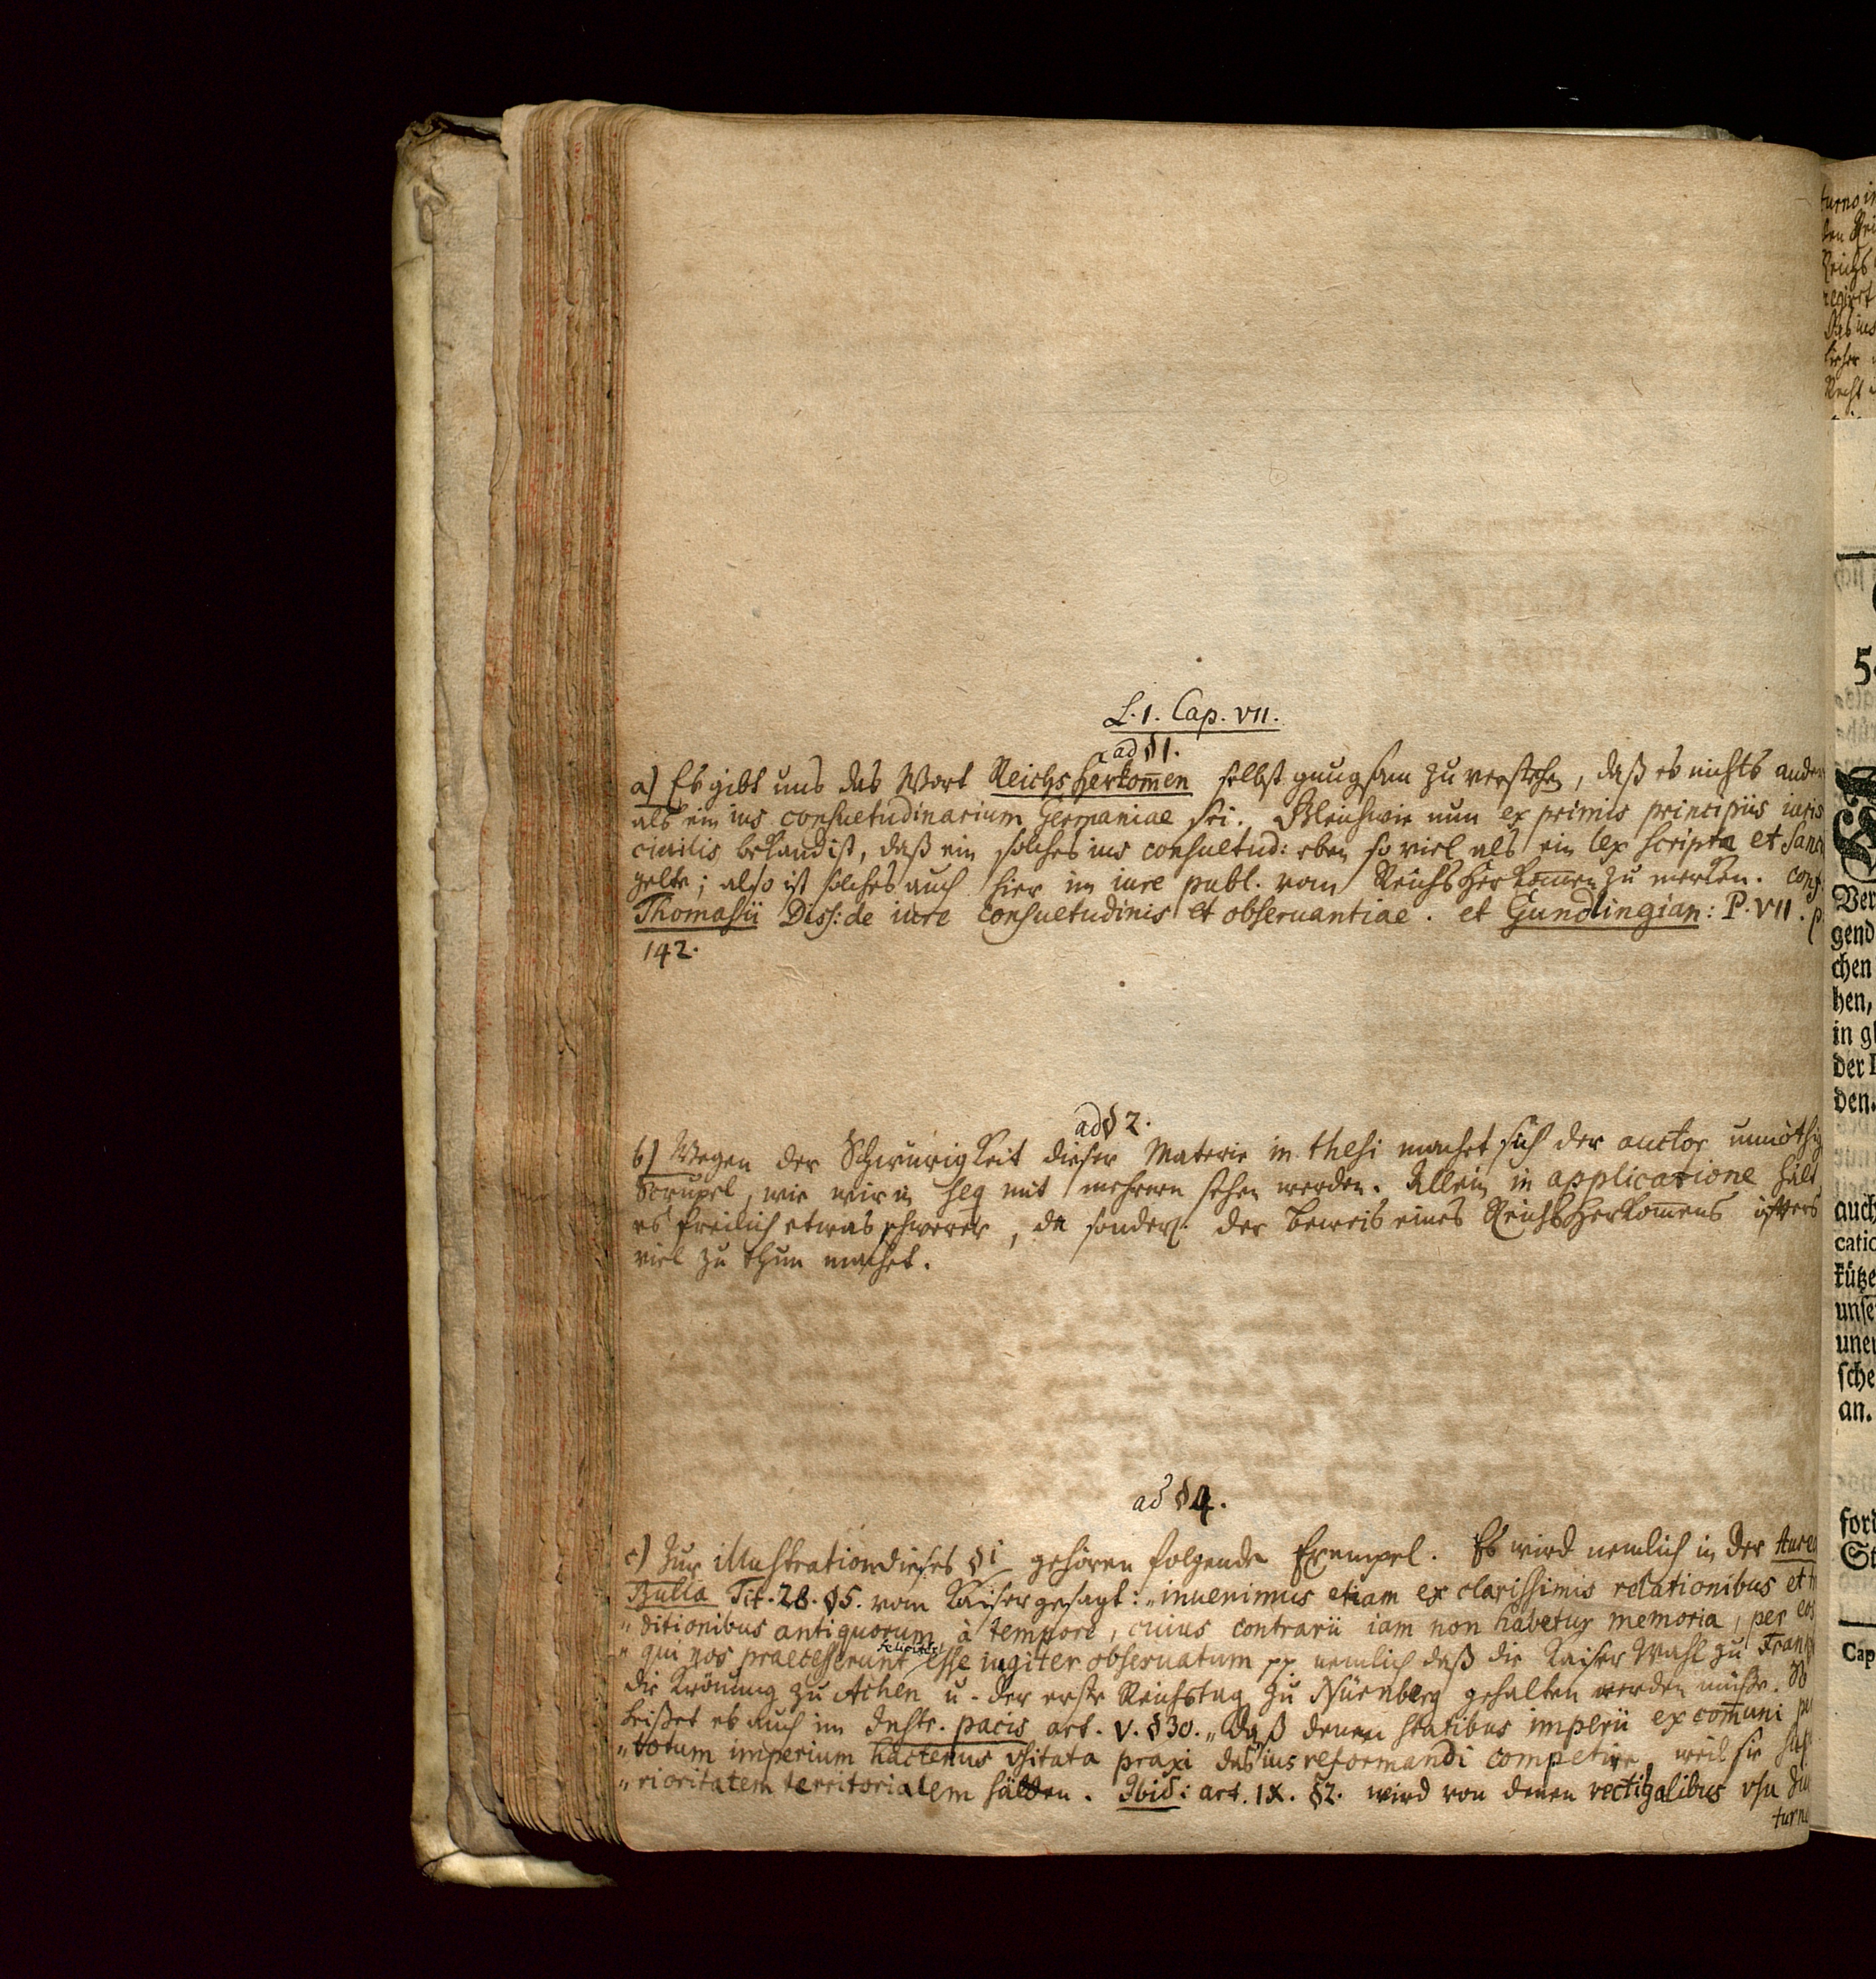 L. 1. Cap. VII.
ad § 1.
a) Es gibt uns das Wort Reichs Herkom̅en selbst gnugsam zu verstehen, daß es nichts ander
als ein ius consuetudinarium Germaniae sei. Gleichwie nun ex primis principiis iuris
ciuilis bekand ist, daß ein solches ius consuetud: eben so viel als ein lex scripta et sanc
gelte; also ist solches auch hier im iure publ. vom Reichs Herkom̅en zu merken. conf.
Thomasii Diss: de iure consuetudinis et obseruantiae. et Gundlingian: P. VII. p
142.
ad § 2.
b) Wegen der Schwürigkeit dieser Materie in thesi machet sich der auctor unnöthig
Scrupel, wie wir in seq mit mehrern sehen werden. Allein in applicatione hält
es freilich etwas schwerer, da sonderl. der Beweis eines Reichs Herkom̅ens öfters
viel zu thun machet.
ad § 4.
c) Zur illustration dieses §i gehören folgende Exempel. Es wird nemlich in der Aure
Bulla Tit. 28. § 5. vom Kaiser gesagt: „inuenimus etiam ex clarissimis relationibus et tr
„ditionibus antiquorum à tempore, cuius contrarii iam non habetur memoria, per eos
„qui nos praecesserunt feliciter esse iugiter obseruatum pp nemlich daß die Kaiser Wahl zu Frankf
die Krönung zu Achen u. der erste Reichstag zu Nürnberg gehalten werden müße. So
heißet es auch im Instr. pacis art. V. § 30. „Daß denen statibus imperii ex com̅uni pe
„totum imperium hactenus vsitata praxi das ius reformandi competire, weil sie sup
„rioritatem territorialem hätten. Ibid: art. IX. § 2. wird von denen vectigalibus vsu diu
turno
turno in
den Rei
Reichs
regiret
Das ius
licher
Recht
5
Ver
gend
chen
hen,
in gl
der
den.
auch
catio
kütze
unse
uner
sche
an.
ford
St
Cap